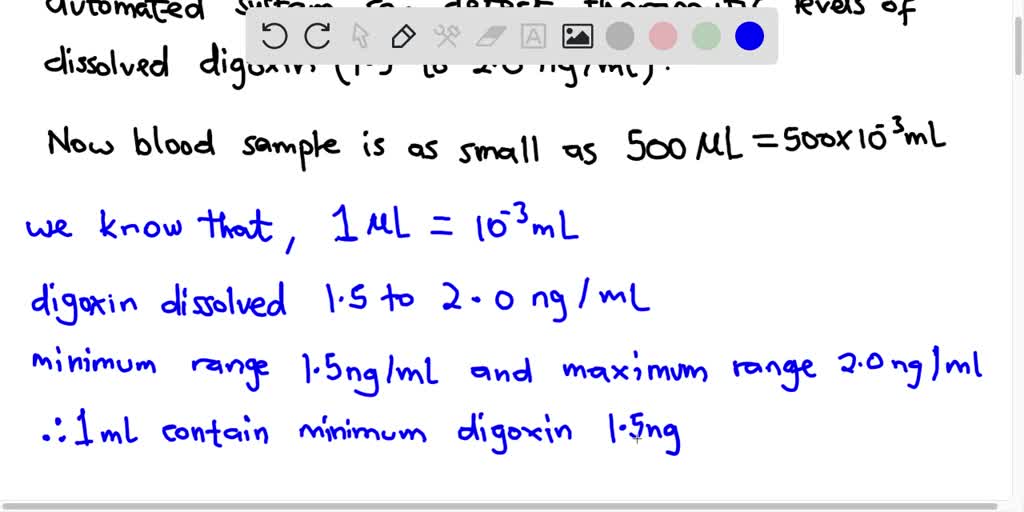 automated levels of
dissolved digoxin (1.5 to 2.0 ng/mL).
Now blood sample is as small as 500 μL = 500×10⁻³ mL
we know that, 1 μL = 10⁻³ mL
digoxin dissolved 1.5 to 2.0 ng/mL
minimum range 1.5ng/mL and maximum range 2.0ng/ml
∴ 1mL contain minimum digoxin 1.5ng
A